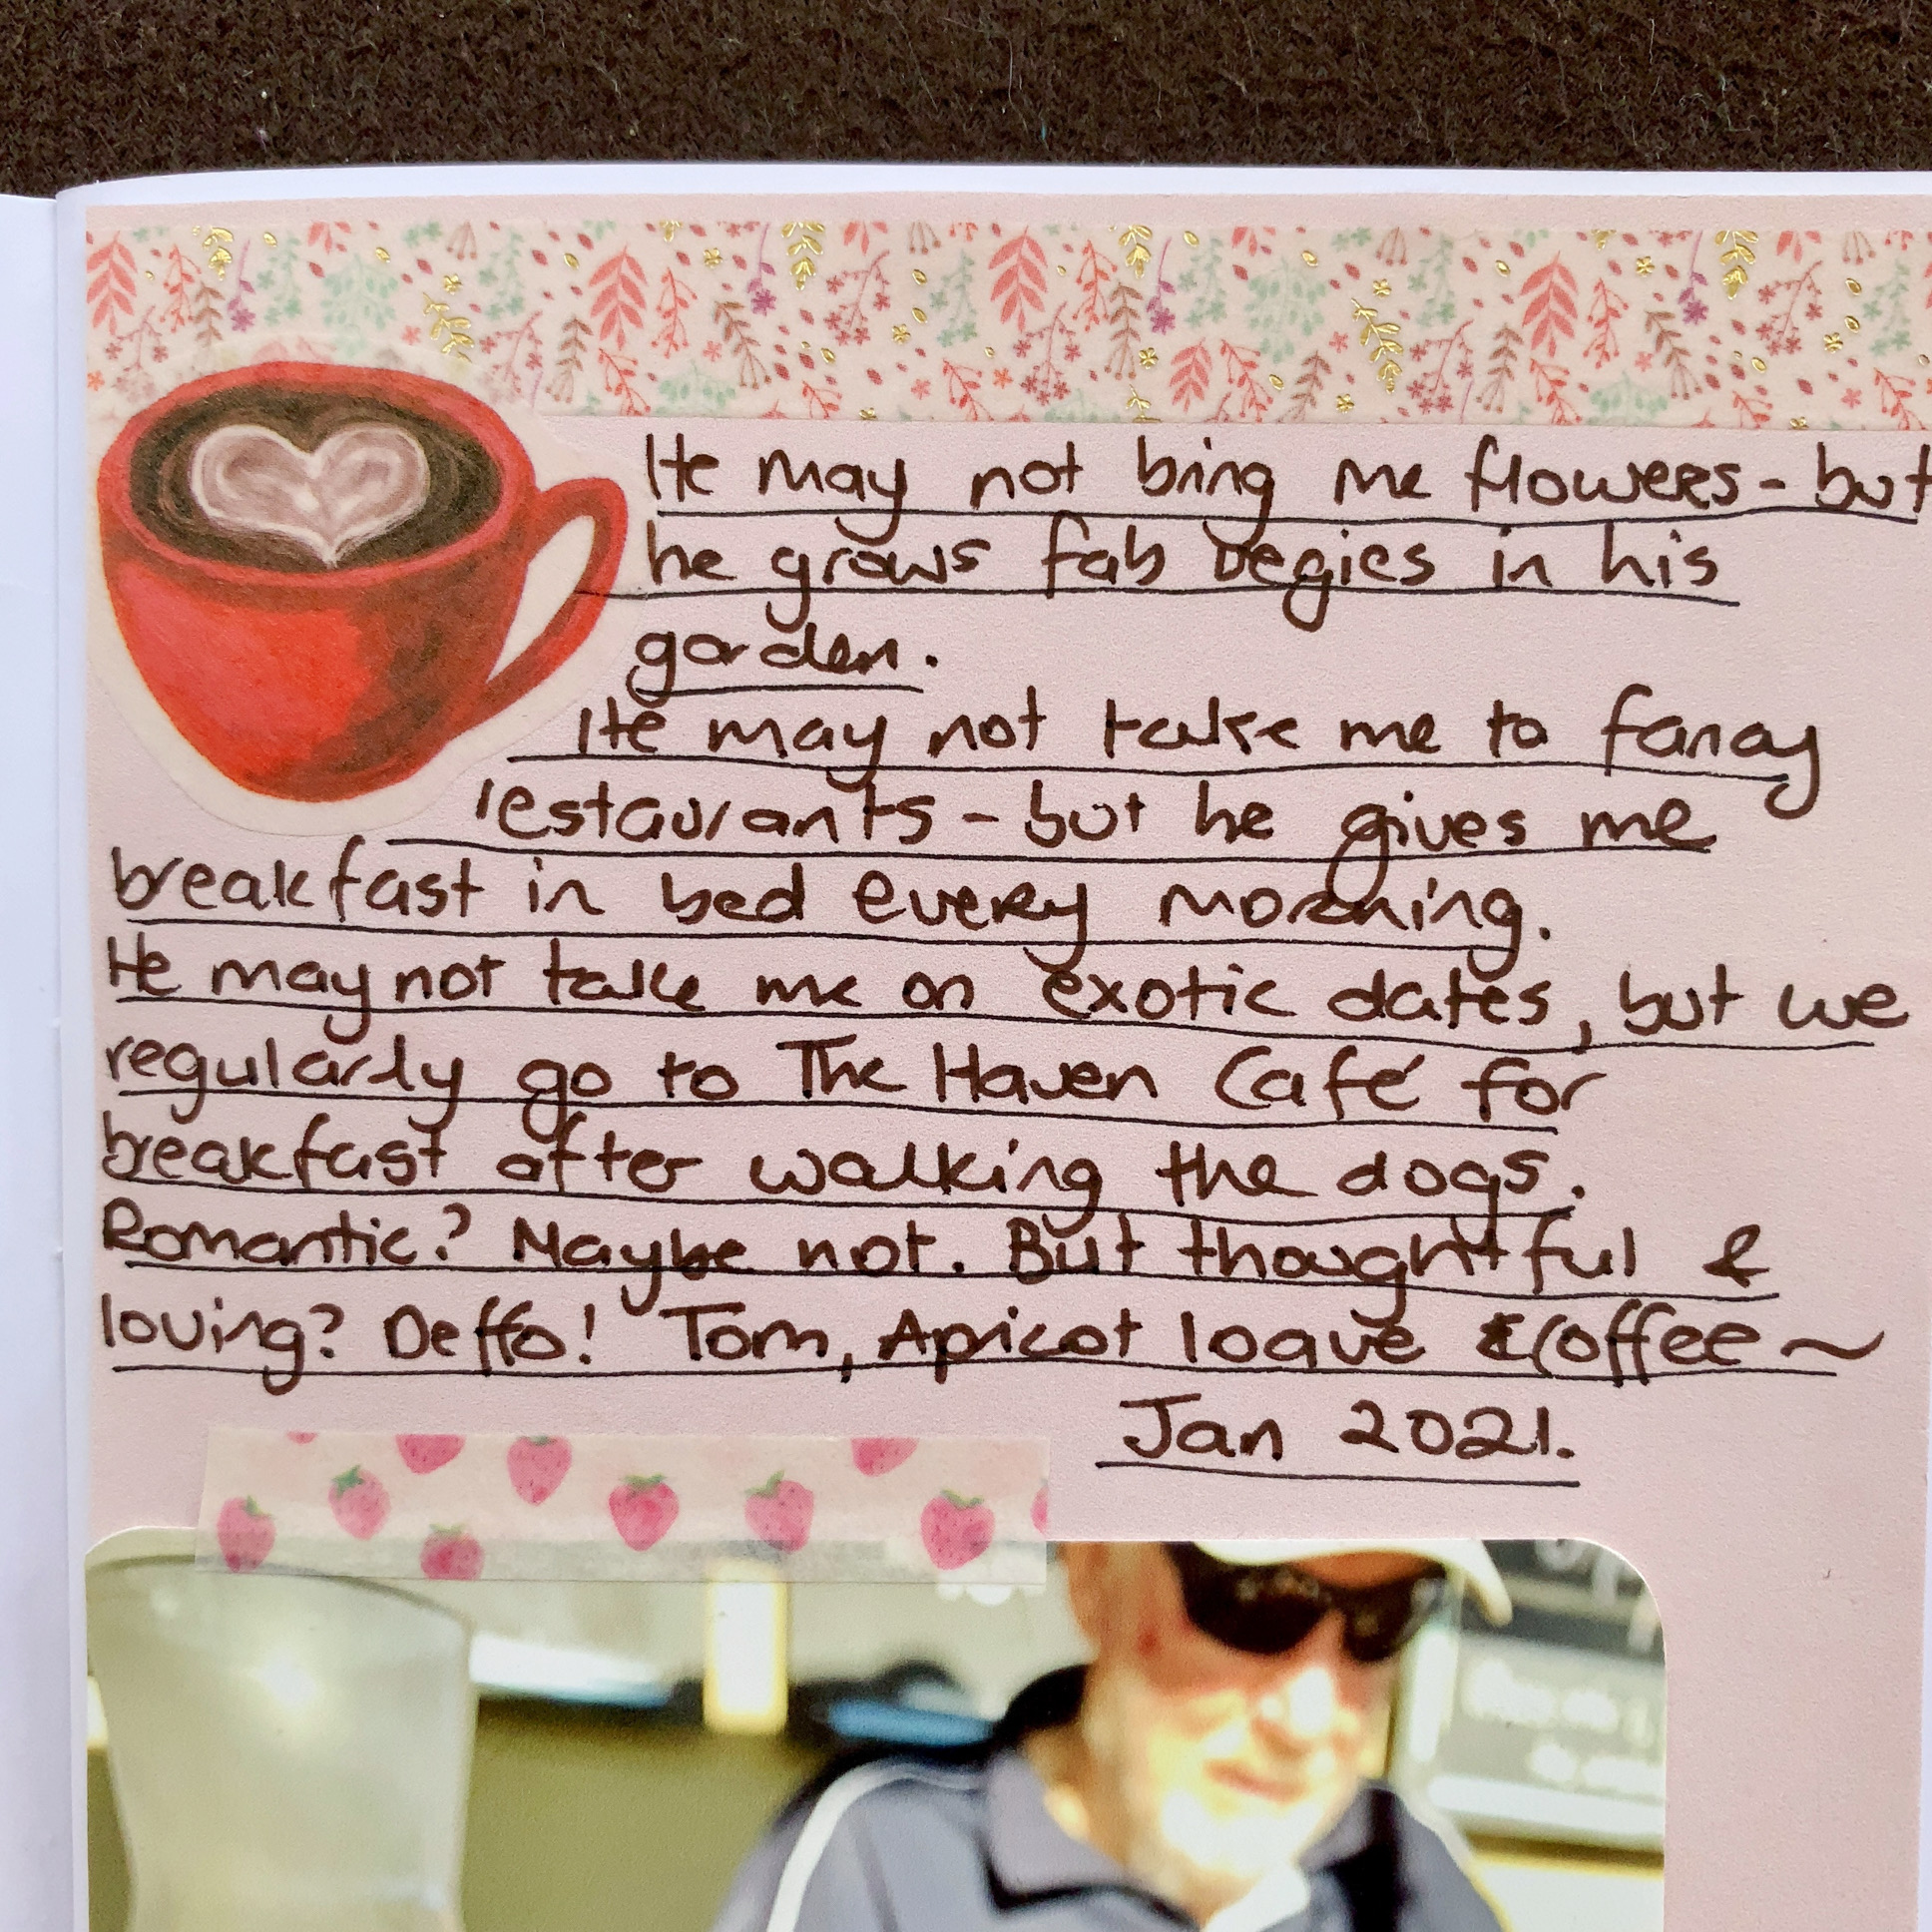 He may not bring me flowers - but
he grows fab vegies in his
garden.
He may not take me to fancy
restaurants - but he gives me
breakfast in bed every morning.
He may not take me on exotic dates, but we
regularly go to The Haven Café for
breakfast after walking the dogs.
Romantic? Maybe not. But thoughtful &
loving? Deffo! Tom, Apricot loave & Coffee ~
Jan 2021.